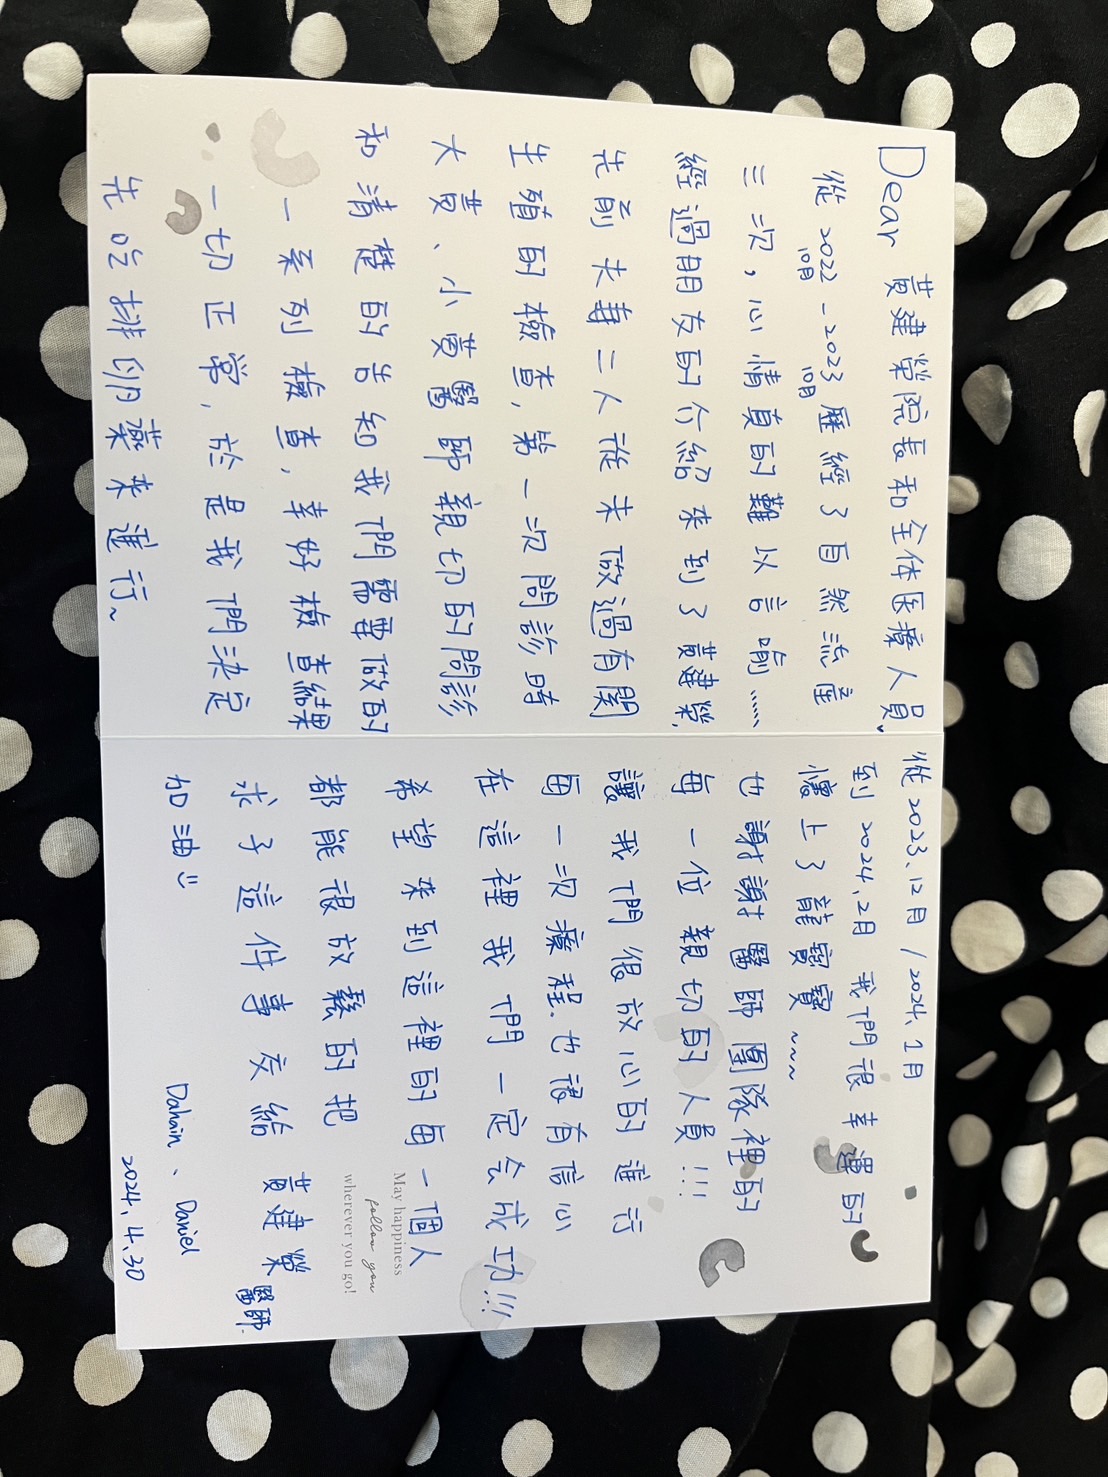 Dear 黃建榮院長和全体医療人員,
從 2022 - 2023 歷經了自然流產
10月 10月
三次,心情真的難以言喻......
經過朋友的介紹來到了黃建榮,
先前夫妻二人從未做過有関
生殖的檢查,第一次問診時
大黃、小黃醫師親切的問診
和清楚的告知我們需要做的
一系列檢查,幸好檢查結果
一切正常,於是我們決定
先吃排卵藥來進行~
從2023.12月 / 2024.1月
到 2024.2月 我們很幸運的
懷上了龍寶寶~~~
也謝謝醫師團隊裡的
每一位親切的人員!!!
讓我們很放心的進行
每一次療程.也很有信心
在這裡我們一定会成功!!!
希望來到這裡的每一個人
都能很放鬆的把
求子這件事交給 黃建榮
醫師.
加油
May happiness
follow you
wherever you go!
Dahain、Daniel
2024.4.30